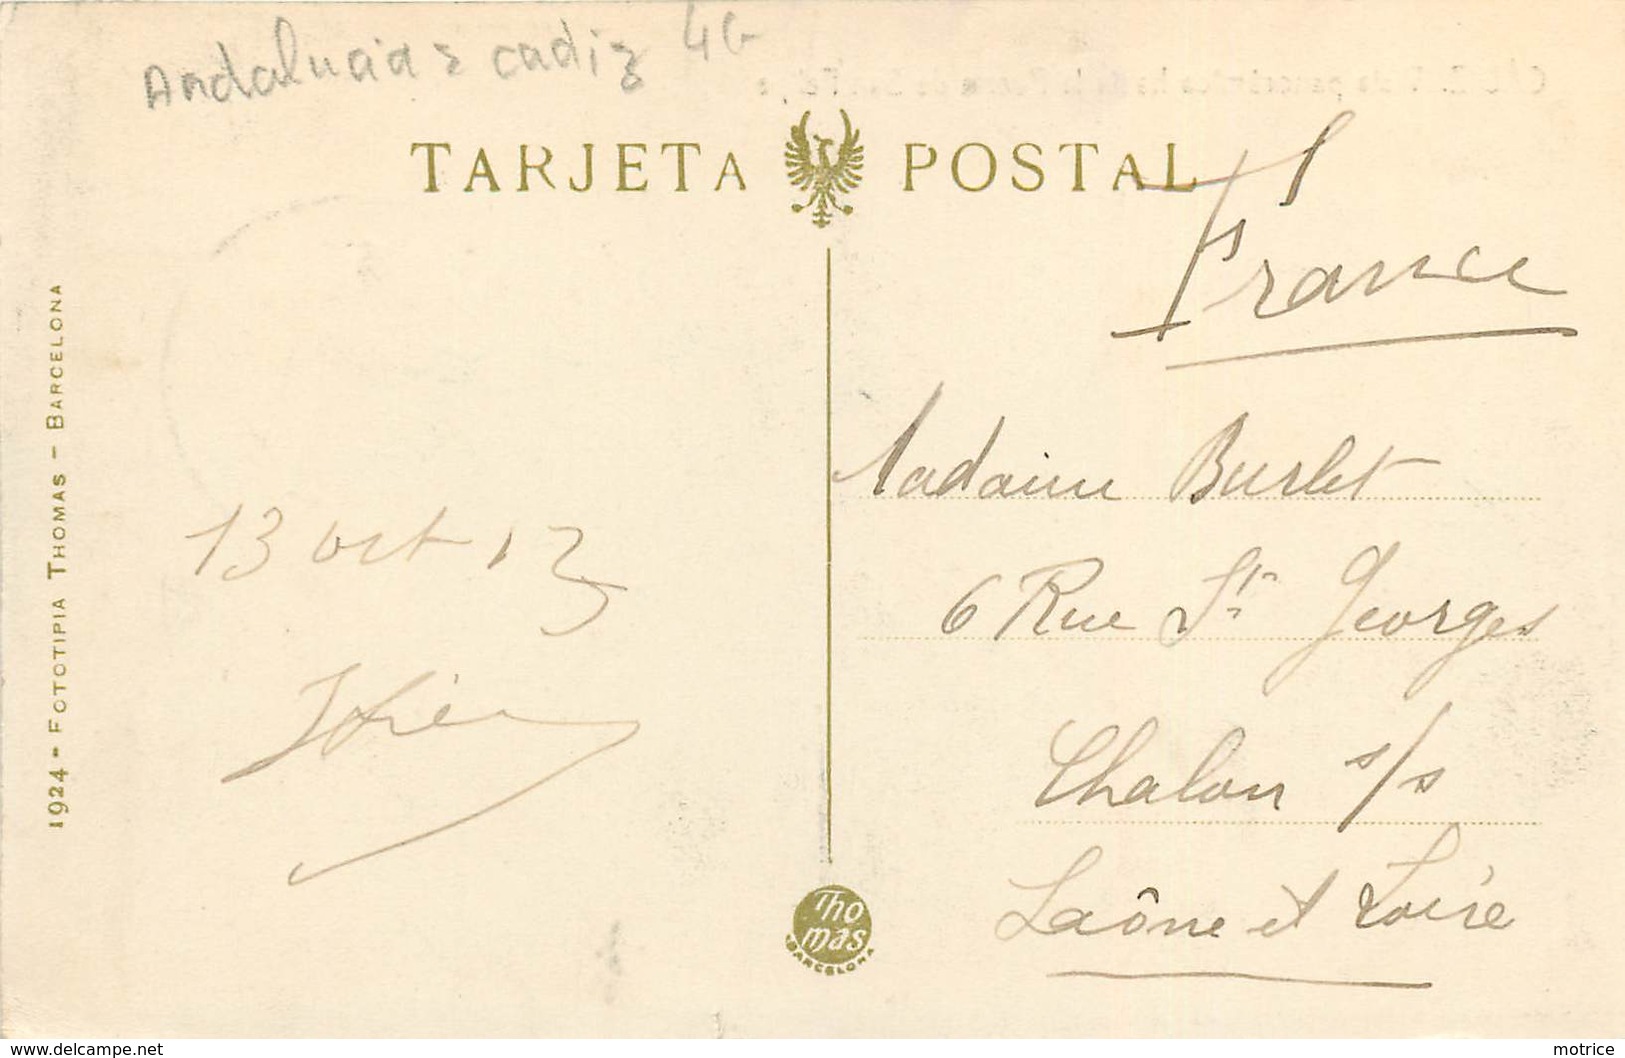 Andalucia cadiz 4G
TARJETA POSTAL
France
1924 - FOTOTIPIA THOMAS - BARCELONA
Madame Burlet
13 oct 13
6 Rue St Georges
Chalon s/s
Saône et Loire
Thomas
BARCELONA
www.delcampe.net
motrice